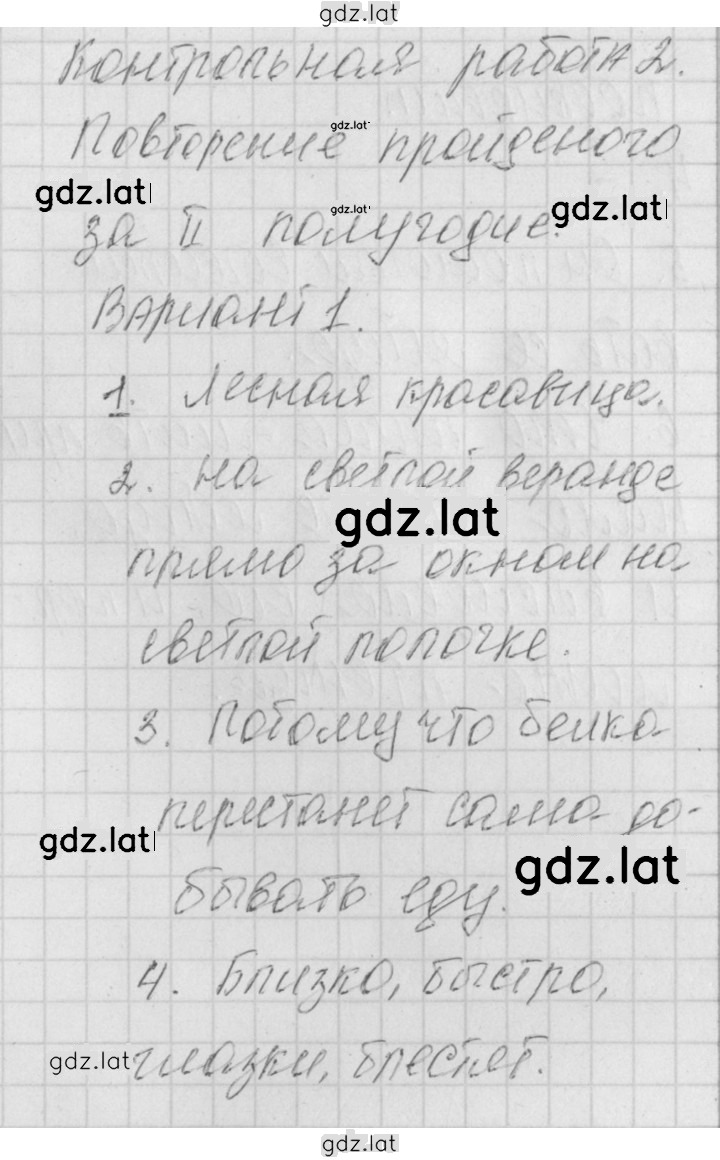 gdz.lat
Контрольная работа 2.
gdz.lat
Повторение пройденого
gdz.lat
gdz.lat
gdz.lat
за II полугодие.
Вариант 1.
1. Лесная красавица.
2. На светлой веранде
gdz.lat
прямо за окном на
светлой полочке.
3. Потому что белка
перестанет сама до-
gdz.lat
gdz.lat
бывать еду.
4. Близко, быстро,
gdz.lat
глазки, блестят.
gdz.lat